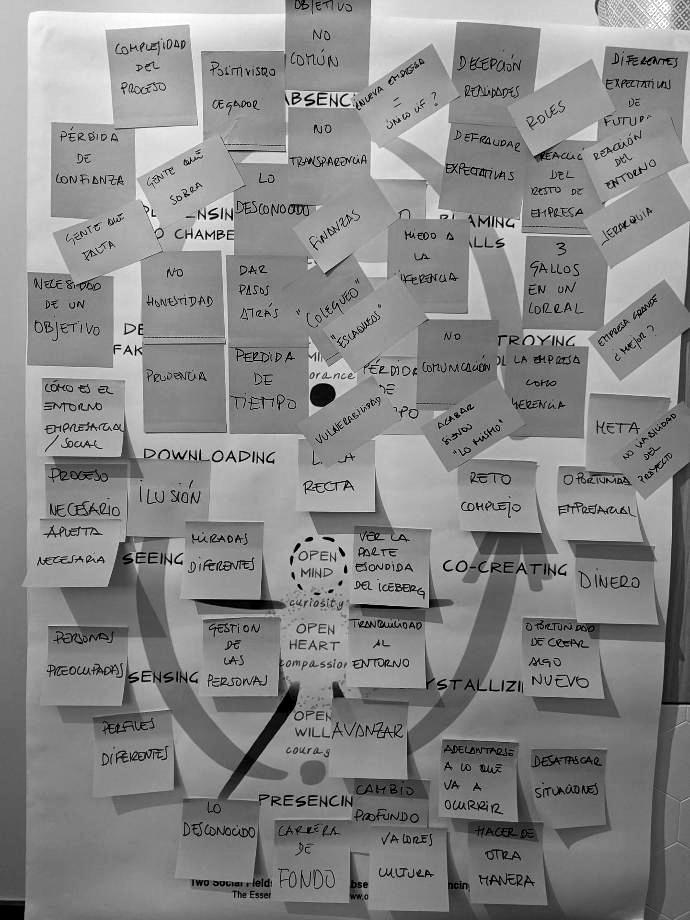 OBJETIVO
NO
COMÚN
COMPLEJIDAD
DEL
PROCESO
POSITIVISMO
CEGADOR
ABSENC
¿NUEVA EMPRESA
=
ÚNICO ÚF?
DECEPCIÓN
REALIDADES
ROLES
DIFERENTES
EXPECTATIVAS
DE
FUTURO
PÉRDIDA
DE
CONFIANZA
GENTE QUE
SOBRA
NO
TRANSPARENCIA
DEFRAUDAR
EXPECTATIVAS
REACCIÓN
DEL
RESTO DE
EMPRESA
REACCIÓN
DEL
ENTORNO
GENTE QUE
FALTA
LO
DESCONOCIDO
FINANZAS
MIEDO A
LA
JERARQUIA
SENSING
CHAMBE
BLAMING
ALLS
3
GALLOS
EN UN
CORRAL
NECESIDAD
DE UN
OBJETIVO
NO
HONESTIDAD
DAR
PASOS
ATRÁS
"COLEGUEO"
"ESCAQUEOS"
EMPRESA GRANDE
¿MEJOR?
DE
FAK
TROYING
orance
PRUDENCIA
PERDIDA
DE
TIEMPO
PÉRDIDA
DE
PO
NO
COMUNICACIÓN
LA EMPRESA
COMO
HERENCIA
VULNERABILIDAD
ACABAR
SIENDO
"LO MISMO"
CÓMO ES EL
ENTORNO
EMPRESARIAL
/ SOCIAL
META
NO VIABILIDAD
DEL
PROYECTO
DOWNLOADING
RECTA
PROCESO
NECESARIO
ILUSIÓN
RETO
COMPLEJO
OPORTUNIDAD
EMPRESARIAL
APUESTA
NECESARIA
SEEING
MIRADAS
DIFERENTES
OPEN
MIND
curiosity
VER LA
PARTE
ESCONDIDA
DEL ICEBERG
CO-CREATING
DINERO
PERSONAS
PREOCUPADAS
SENSING
GESTION
DE
LAS
PERSONAS
OPEN
HEART
compassion
TRANQUILIDAD
AL
ENTORNO
YSTALLIZI
OPORTUNIDAD
DE CREAR
ALGO
NUEVO
PERFILES
DIFERENTES
OPEN
WILL
courag
AVANZAR
ADELANTARSE
A LO QUE
VA A
OCURRIR
DESATASCAR
SITUACIONES
PRESENCIN
LO
DESCONOCIDO
CARRERA
DE
FONDO
CAMBIO
PROFUNDO
VALORES
CULTURA
HACER DE
OTRA
MANERA
Two Social Field
Abse
ncing
The Esse